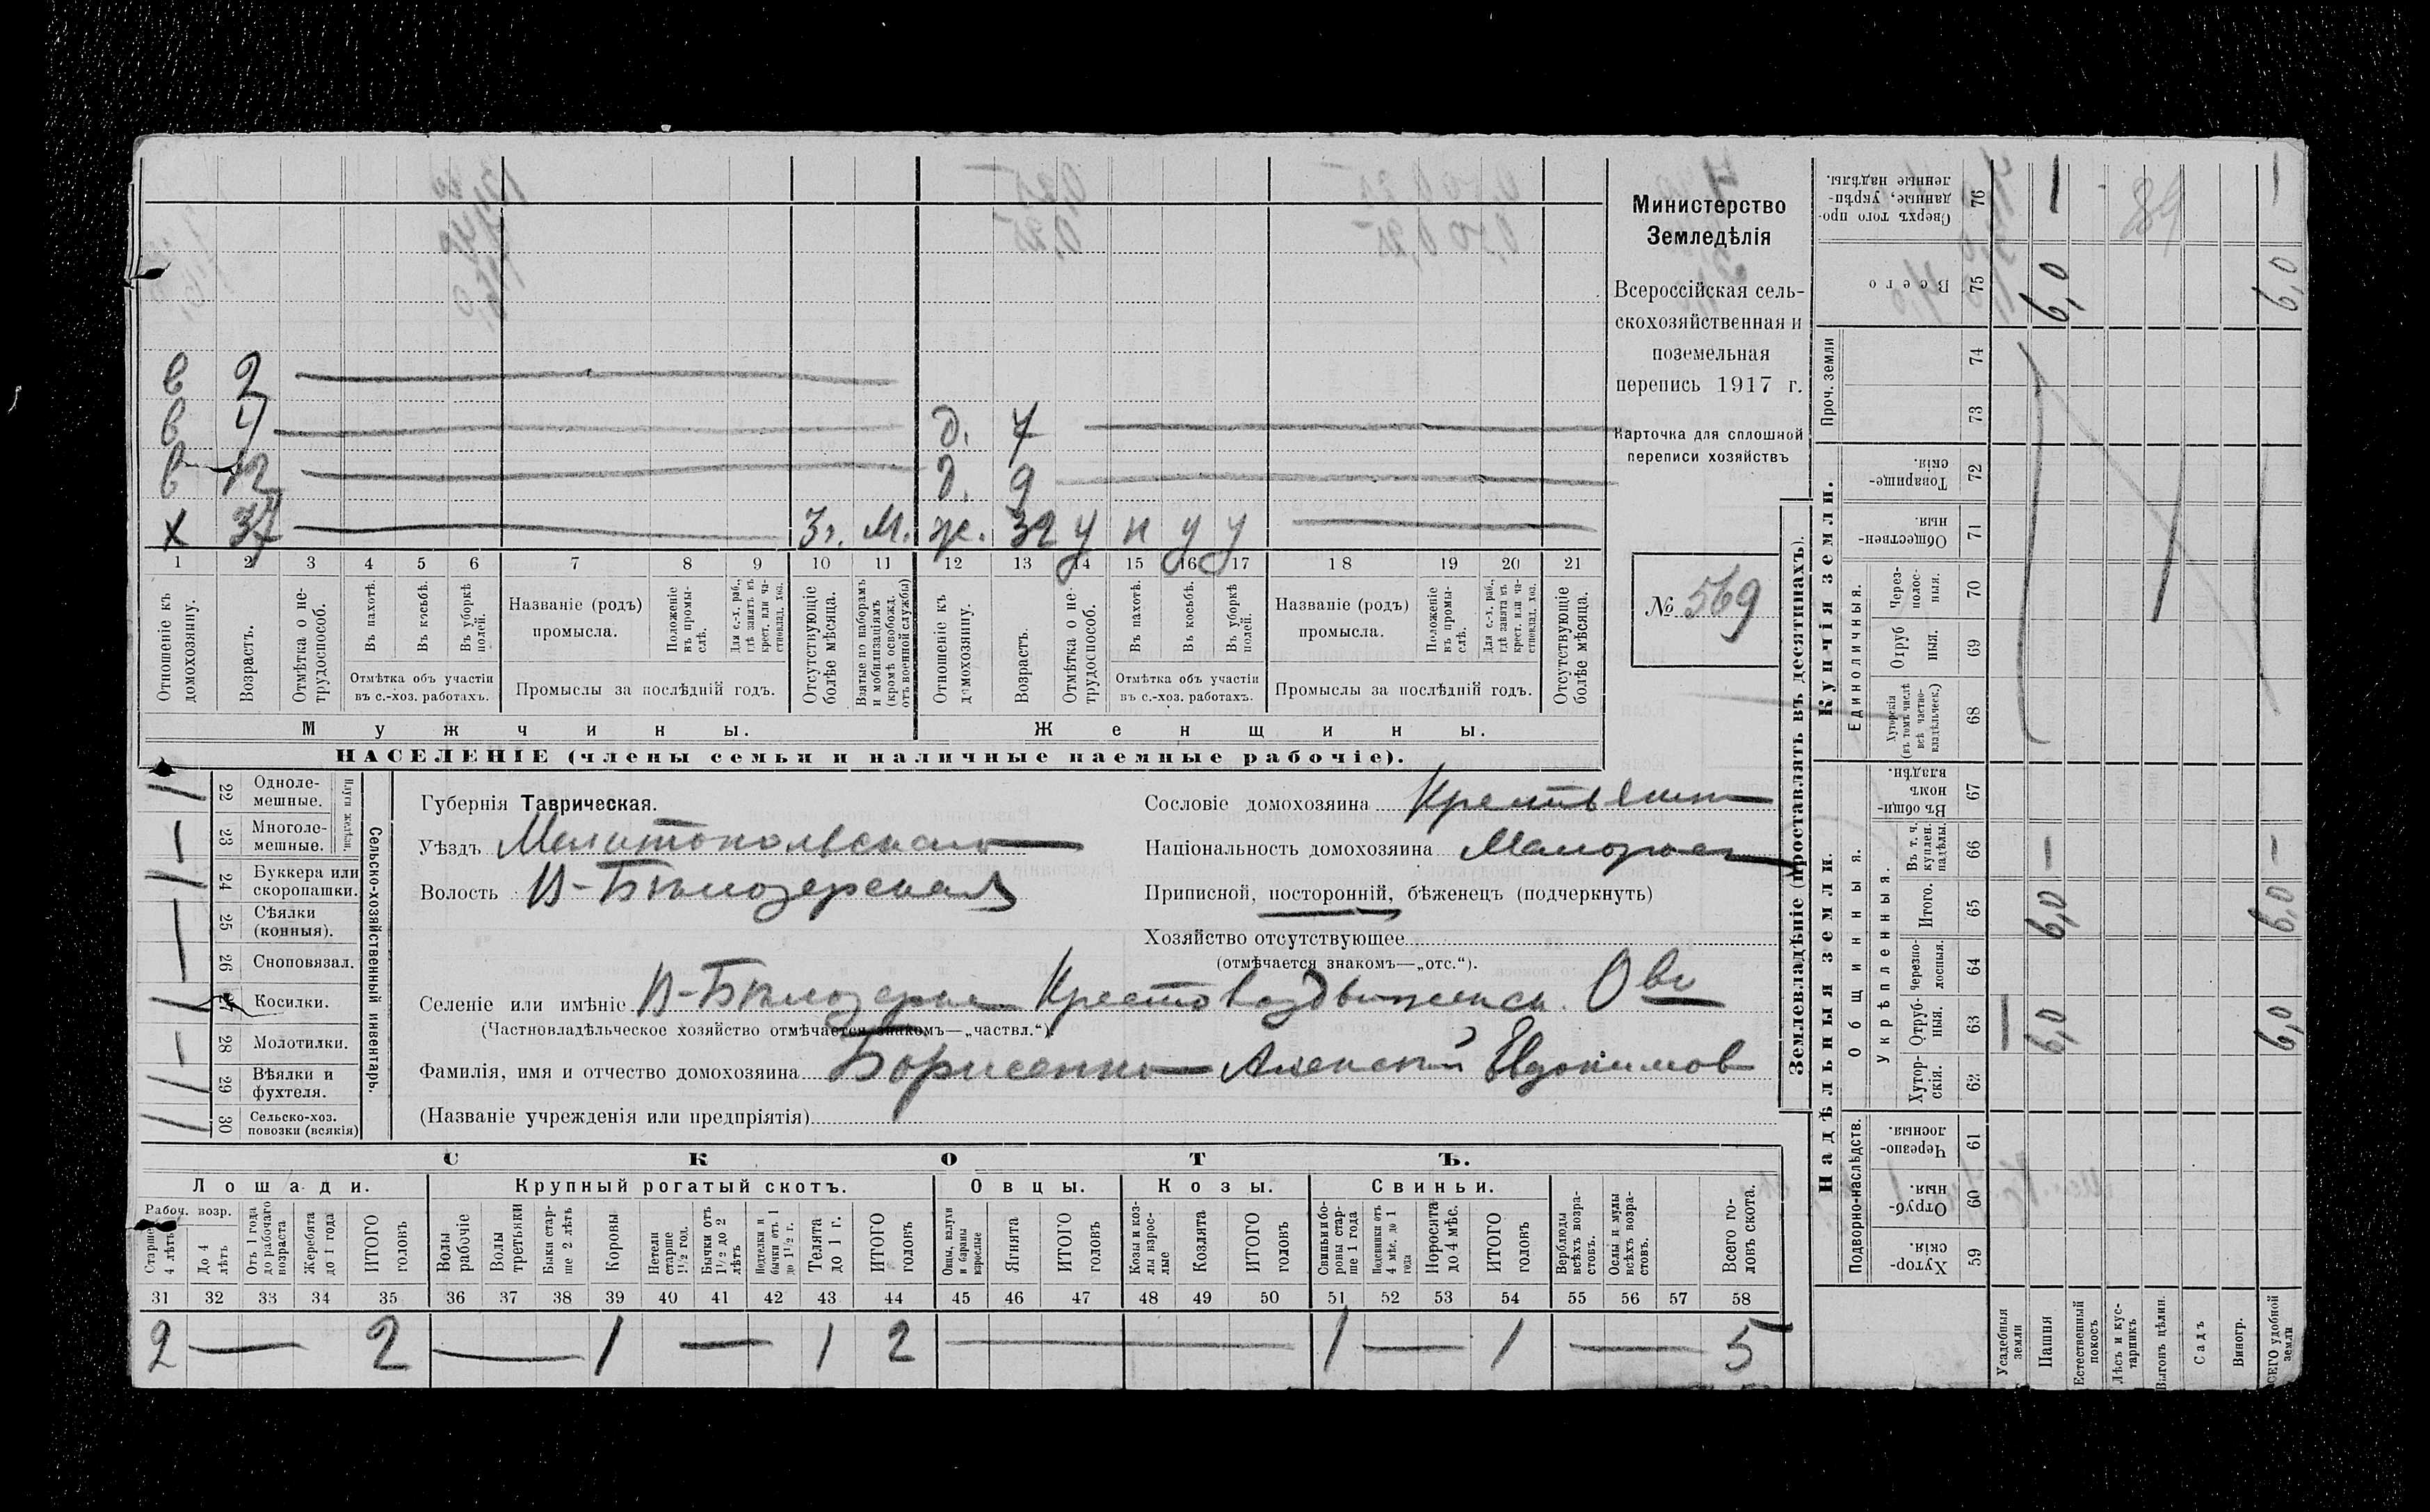 в 2
в 4 д. 7
в 12 д. 9
х 37 3г. м. ж. 32 у п у у
1 2 3 4 5 6 7 8 9 10 11 12 13 14 15 16 17 18 19 20 21
Отношеніе къ домохозяину.
Возрастъ.
Отмѣтка о не-трудоспособ.
Въ пахотѣ.
Въ косьбѣ.
Въ уборкѣ полей.
Отмѣтка объ участіи въ с.-хоз. работахъ.
Названіе (родъ) промысла.
Положеніе въ промы-слѣ.
Для с.-х. раб., гдѣ занятъ въ крест. или ча-стновлад. хоз.
Промыслы за послѣдній годъ.
Отсутствующіе болѣе мѣсяца.
Взятые по наборамъ и мобилизаціямъ (кромѣ освобожд. отъ военной службы)
Отношеніе къ домохозяину.
Возрастъ.
Отмѣтка о не-трудоспособ.
Въ пахотѣ.
Въ косьбѣ.
Въ уборкѣ полей.
Отмѣтка объ участіи въ с.-хоз. работахъ.
Названіе (родъ) промысла.
Положеніе въ промы-слѣ.
Для с.-х. раб., гдѣ занята въ крест. или ча-стновлад. хоз.
Промыслы за послѣдній годъ.
Отсутствующіе болѣе мѣсяца.
Мужчины. Женщины.
НАСЕЛЕНІЕ (члены семьи и наличные наемные рабочіе).
Министерство
Земледѣлія
Всероссійская сель-
скохозяйственная и
поземельная
перепись 1917 г.
Карточка для сплошной
переписи хозяйствъ
№ 569
22 Одноле-мешные.
23 Многоле-мешные.
Плуги желѣзн.
24 Буккера или скоропашки.
25 Сѣялки (конныя).
26 Сноповязал.
27 Косилки.
28 Молотилки.
29 Вѣялки и фухтеля.
30 Сельско-хоз. повозки (всякія)
Сельско-хозяйственный инвентарь.
Губернія Таврическая.
Уѣздъ Мелитопольскаго
Волость В-Бѣлозерская
Сословіе домохозяина Крестьянин
Національность домохозяина Малорос
Приписной, посторонній, бѣженецъ (подчеркнуть)
Хозяйство отсутствующее
(отмѣчается знакомъ—„отс.“).
Селеніе или имѣніе В-Бѣлозерка Крестовоздвиженск. Ово
(Частновладѣльческое хозяйство отмѣчается знакомъ—„частвл.“).
Фамилія, имя и отчество домохозяина Борисенко Алексѣй Евдокимов
(Названіе учрежденія или предпріятія)
СКОТЪ.
Лошади. Крупный рогатый скотъ. Овцы. Козы. Свиньи.
Рабоч. возр.
Старше 4 лѣтъ
До 4 лѣтъ
Отъ 1 года до рабочаго возраста
Жеребята до 1 года
ИТОГО головъ
Волы рабочіе
Волы третьяки
Быки стар-ше 2 лѣтъ
Коровы
Нетели старше 1½ год.
Бычки отъ 1½ до 2 лѣтъ
Подтелки и бычки отъ 1 до 1½ г.
Телята до 1 г.
ИТОГО головъ
Овцы, валухи и бараны взрослые
Ягнята
ИТОГО головъ
Козы и коз-лы взрос-лые
Козлята
ИТОГО головъ
Свиньи и бо-ровы стар-ше 1 года
Подсвинки отъ 4 мѣс. до 1 года
Поросята до 4 мѣс.
ИТОГО головъ
Верблюды всѣхъ возра-стовъ.
Ослы и мулы всѣхъ возра-стовъ.
Всего го-ловъ скота.
31 32 33 34 35 36 37 38 39 40 41 42 43 44 45 46 47 48 49 50 51 52 53 54 55 56 57 58
2 — 2 — 1 — 1 2 — 1 — 1 — 5
Землевладѣніе (проставлять въ десятинахъ).
Надѣльныя земли. Купчія земли.
Подворно-наслѣдств. Общинныя. Укрѣпленныя. Единоличныя. Проч. земли
Хутор-скія. 59
Отруб-ныя. 60
Черезпо-лосныя. 61
Хутор-скія. 62
Отруб-ныя. 63
Черезпо-лосныя. 64
Итого. 65
Въ т. ч. куплен. надѣлы. 66
Въ общи-номъ владѣн. 67
Хуторскія (въ томъ числѣ всѣ частно-владѣльческ.) 68
Отруб ныя. 69
Через-полос-ныя. 70
Обществен-ныя. 71
Товарище-скія. 72
73
74
Всего 75
Сверхъ того про-данные, укрѣп-ленные надѣлы. 76
Усадебныя земли
Пашня 6,0 6,0 — 6,0 —
Естественный покосъ
Лѣсъ и кус-тарникъ
Выгонъ цѣлин.
Садъ
Виногр.
ВСЕГО удобной земли 6,0 6,0 — 6,0 —
89